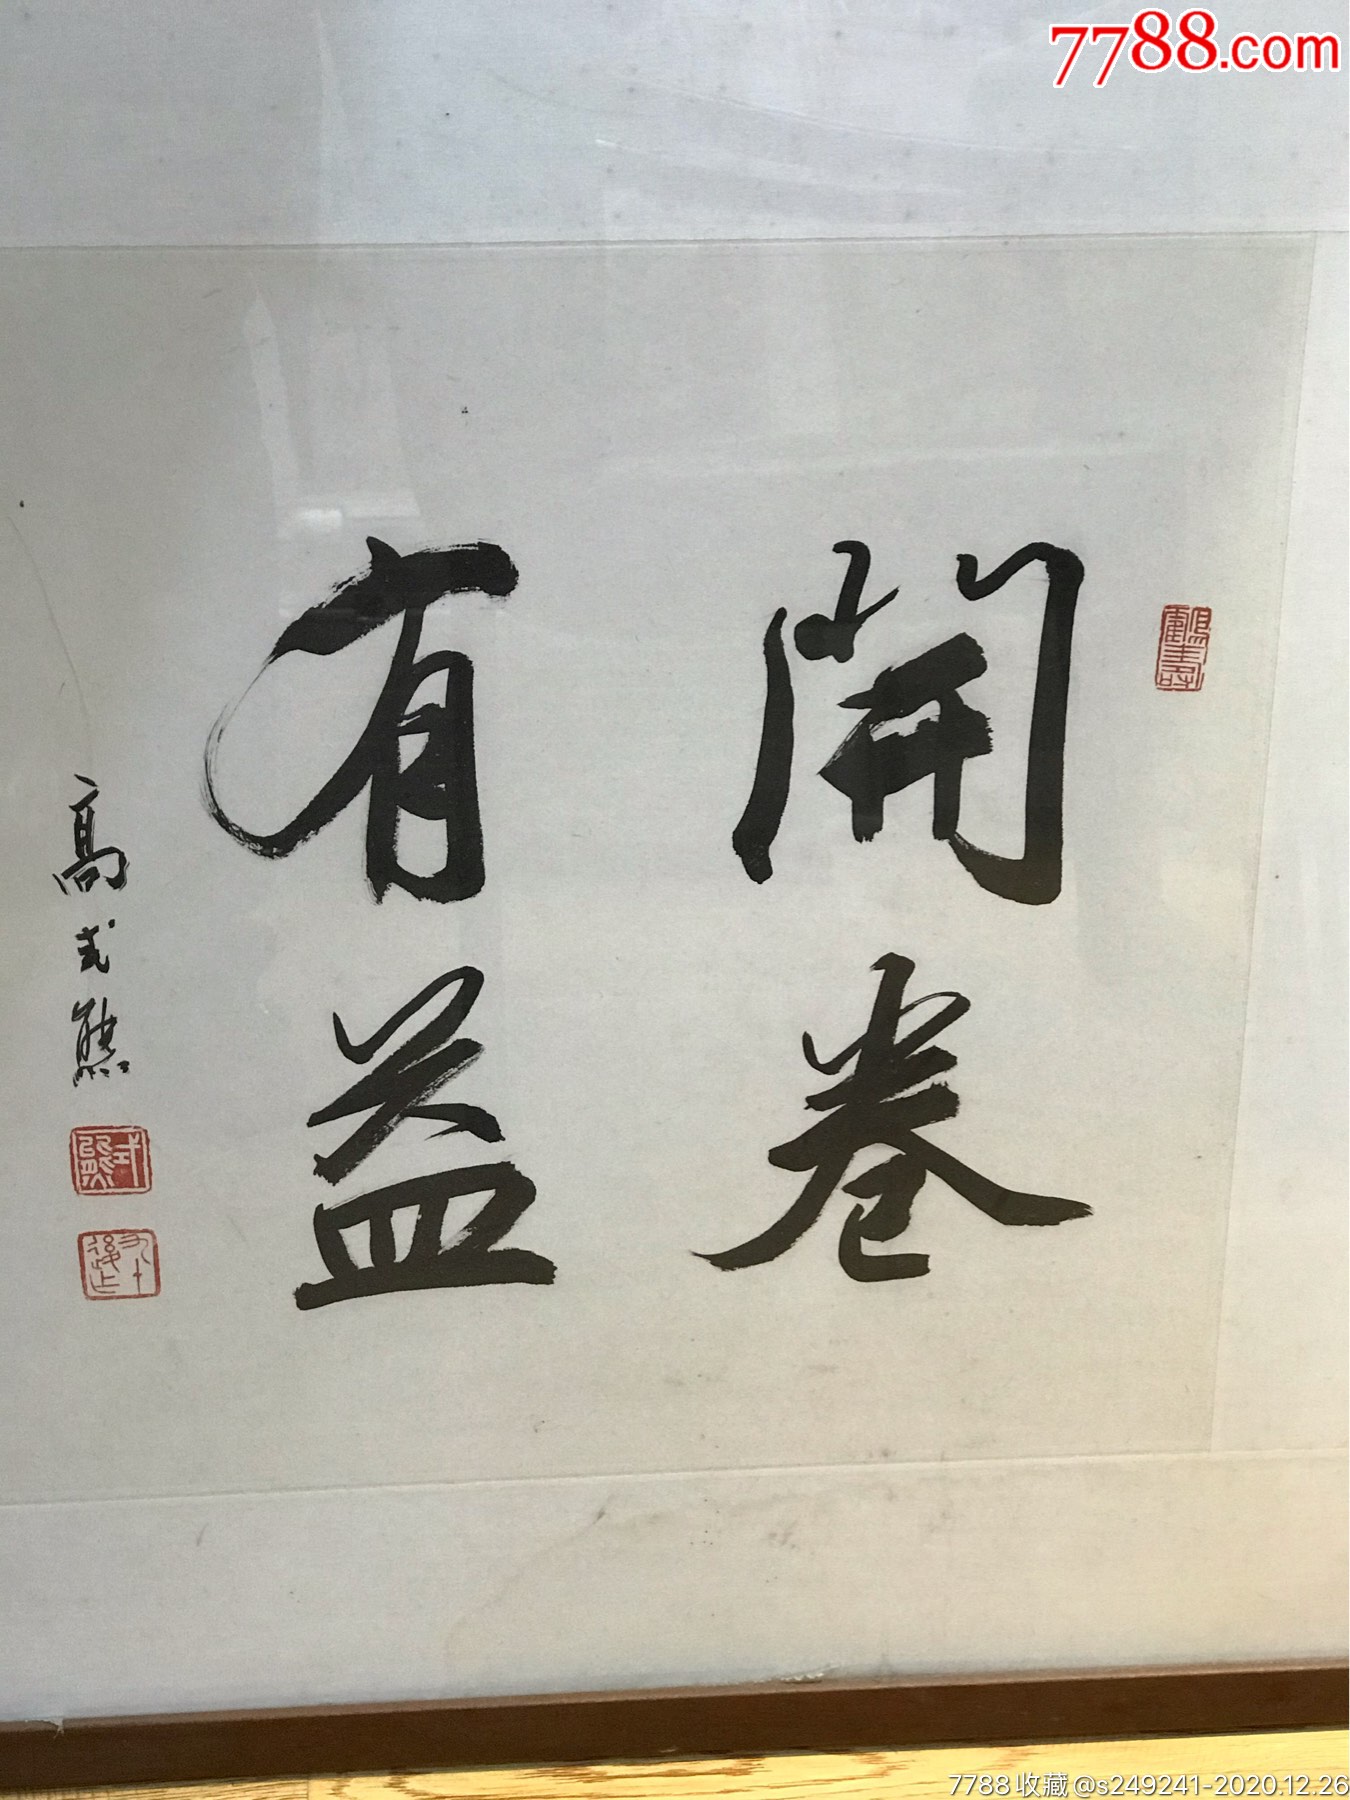 7788.com
開卷
有益
高式熊
鶴壽
式熊
九十後作
7788收藏@s249241-2020.12.26